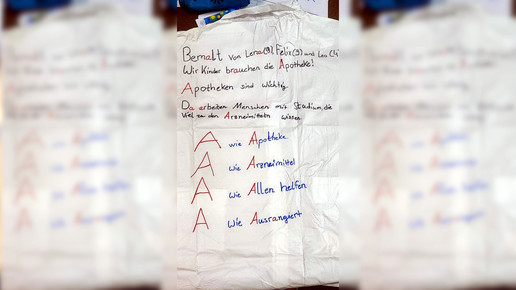 Bemalt von Lena(9), Felix(9) und Lea (4)
Wir Kinder brauchen die Apotheke!
Apotheken sind wichtig
Da arbeiten Menschen mit Studium, die
viel zu den Arzneimitteln wissen
A wie Apotheke
A wie Arzneimittel
A wie Allen helfen
A wie Ausrangiert